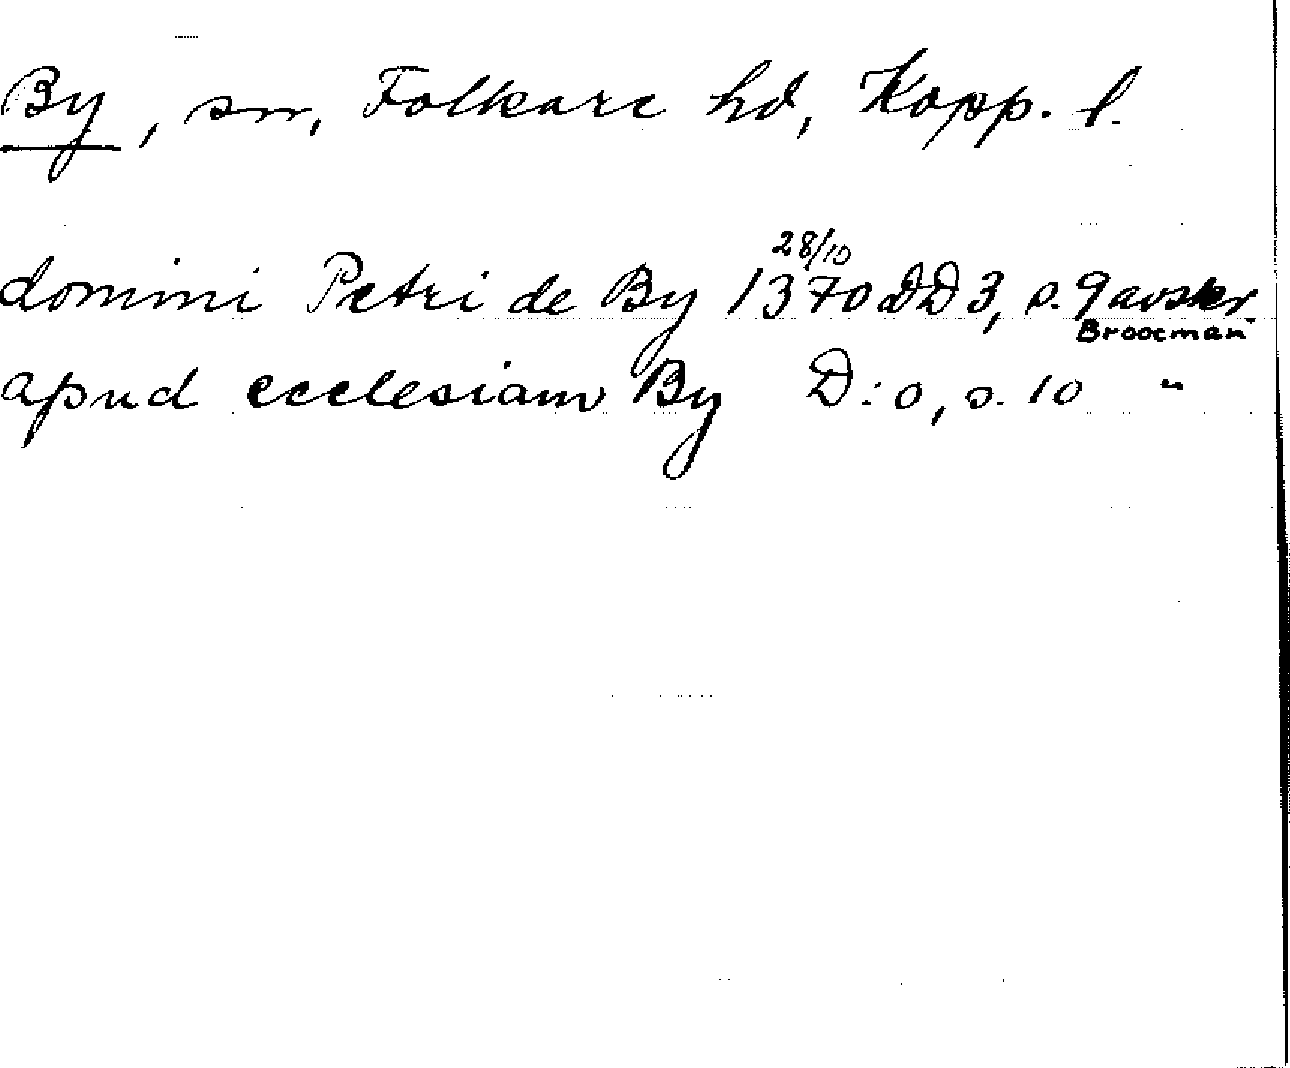 By, sn, Folkare hd, Kopp. l.
28/10
domini Petri de By 1370 DD 3, s. 9 avskr.
Broocman
apud ecclesiam By D:o, s. 10 "